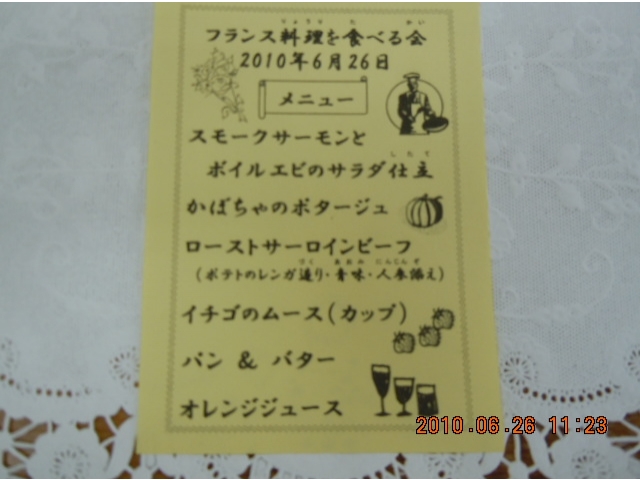 りょうり た かい
フランス料理を食べる会
2010年6月26日
メニュー
スモークサーモンと
したて
ボイルエビのサラダ仕立
かぼちゃのポタージュ
ローストサーロインビーフ
づく あおみ にんじん ぞ
(ポテトのレンガ造り・青味・人参添え)
イチゴのムース(カップ)
パン & バター
オレンジジュース
2010.06.26 11:23